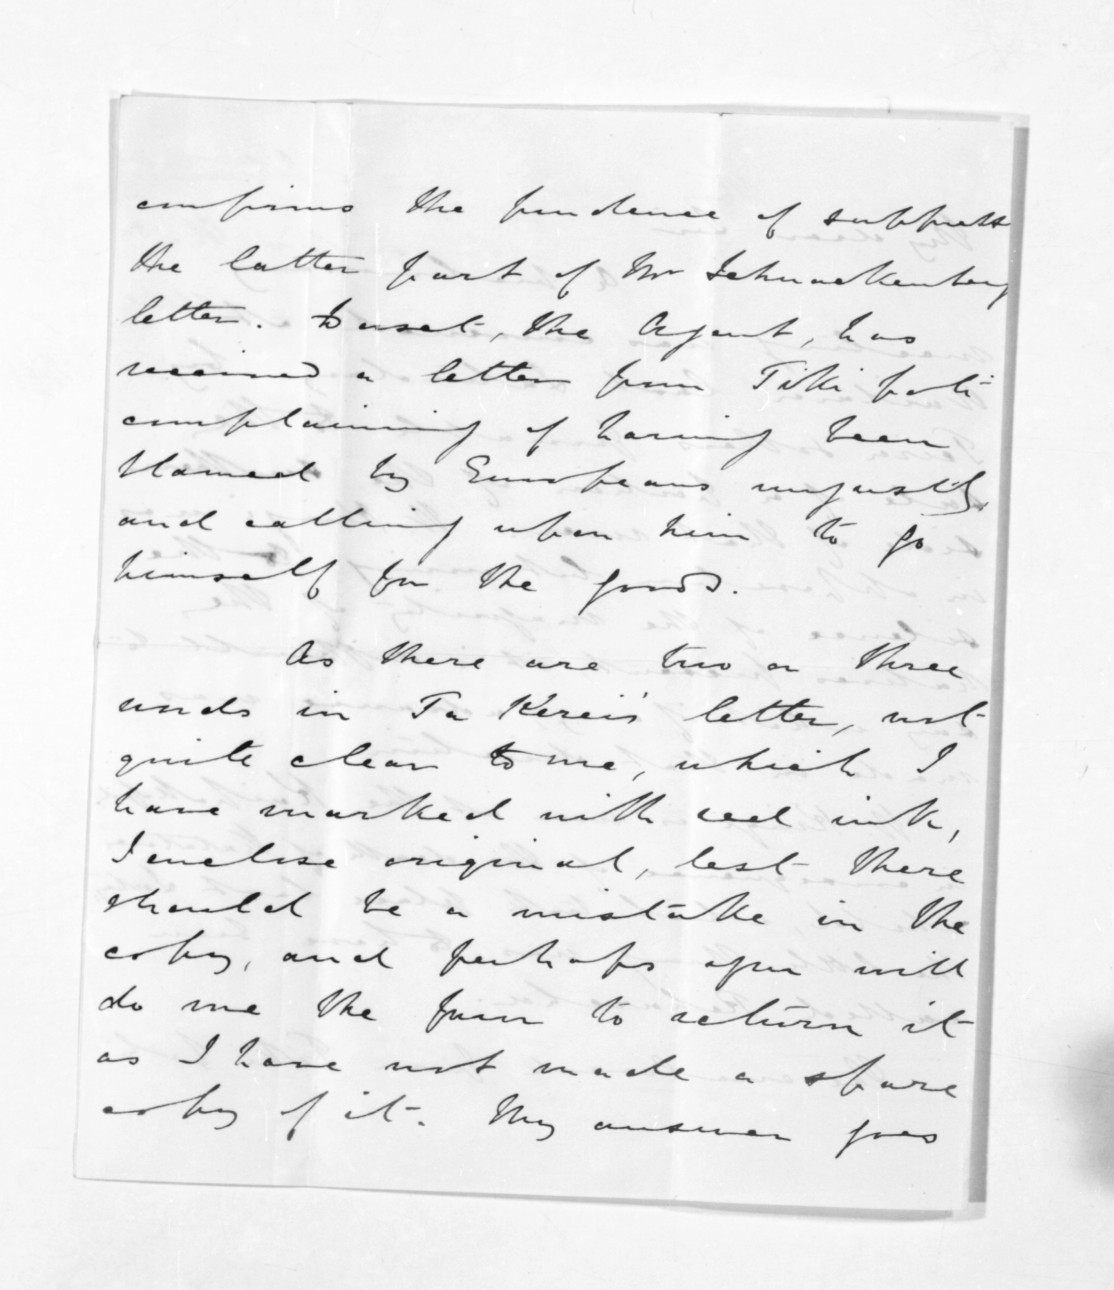 confirms the prudence of suppress
the latter part of Mr Schnackenberg
letter. Dorset, the Agent, has
received a letter from Tiki
complaining of having been
blamed by Europeans unjustly
and calling upon him to go
himself for the goods.
As there are two or three
words in Ta Kerei's letter, not
quite clear to me, which I
have marked with red ink,
I enclose original, lest there
should be a mistake in the
copy, and perhaps you will
do me the favor to return it
as I have not made a spare
copy of it. My answer goes